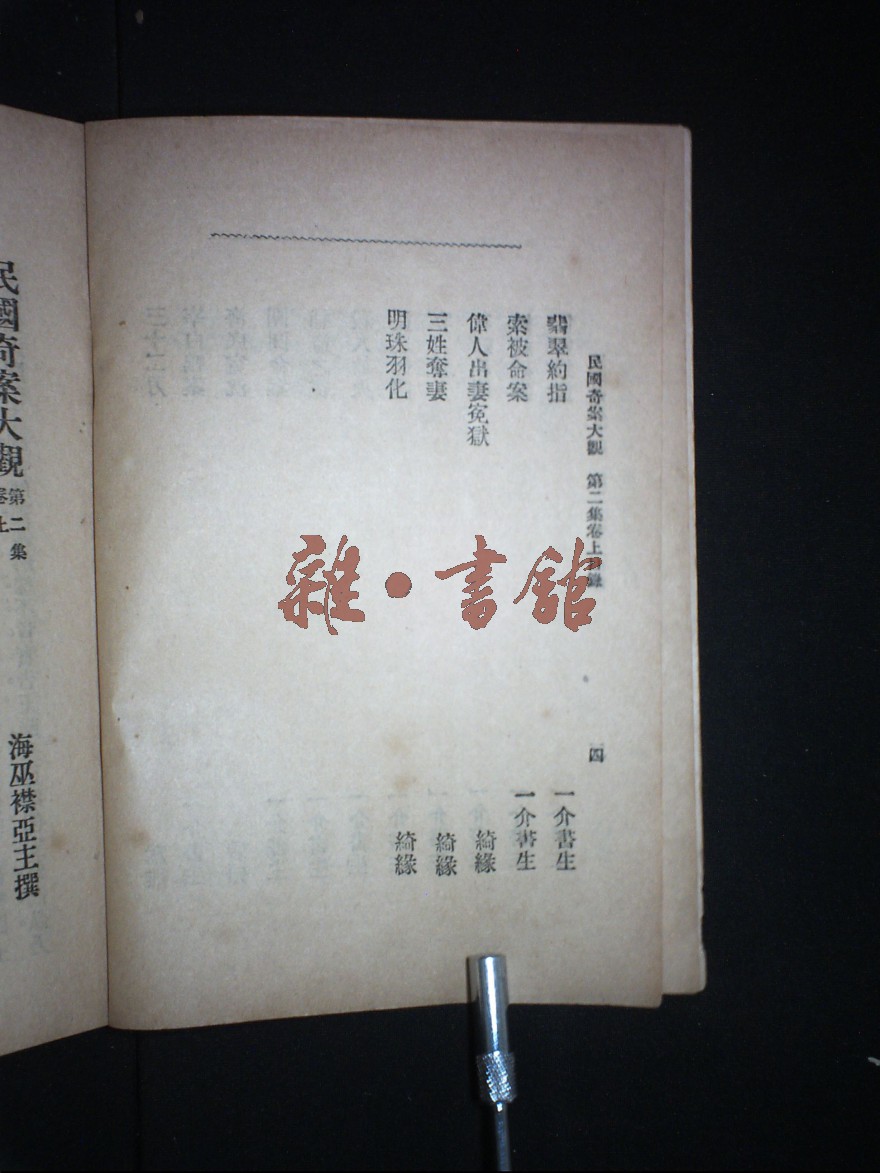 民國奇案大觀 第二集卷上目錄 四
翡翠約指 一介書生
索被命案 一介書生
偉人出妻冤獄 綺緣
三姓奪妻 綺緣
明珠羽化 綺緣
民國奇案大觀 第二集 卷上 海巫襟亞主撰
雜·書館